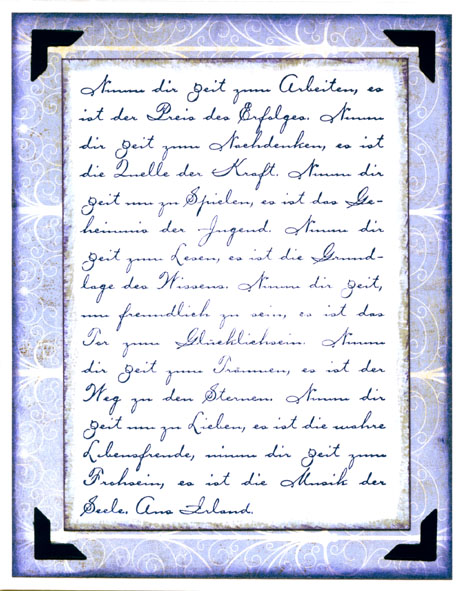 Nimm dir Zeit zum Arbeiten, es
ist der Preis des Erfolges. Nimm
dir Zeit zum Nachdenken, es ist
die Quelle der Kraft. Nimm dir
Zeit um zu Spielen, es ist das Ge-
heimnis der Jugend. Nimm dir
Zeit zum Lesen, es ist die Grund-
lage des Wissens. Nimm dir Zeit,
um freundlich zu sein, es ist das
Tor zum Glücklichsein. Nimm
dir Zeit zum Träumen, es ist der
Weg zu den Sternen. Nimm dir
Zeit um zu Lieben, es ist die wahre
Lebensfreude, nimm dir Zeit zum
Frohsein, es ist die Musik der
Seele. Aus Irland.